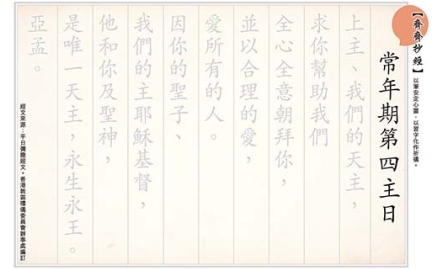 【齊齊抄經】
以筆安定心靈，以習字化作祈禱。
常年期第四主日
上主、我們的天主，
求你幫助我們
全心全意朝拜你，
並以合理的愛，
愛所有的人。
因你的聖子、
我們的主耶穌基督，
他和你及聖神，
是唯一天主，永生永王。
亞孟。
經文來源：平日彌撒經文，香港教區禮儀委員會辦事處編訂